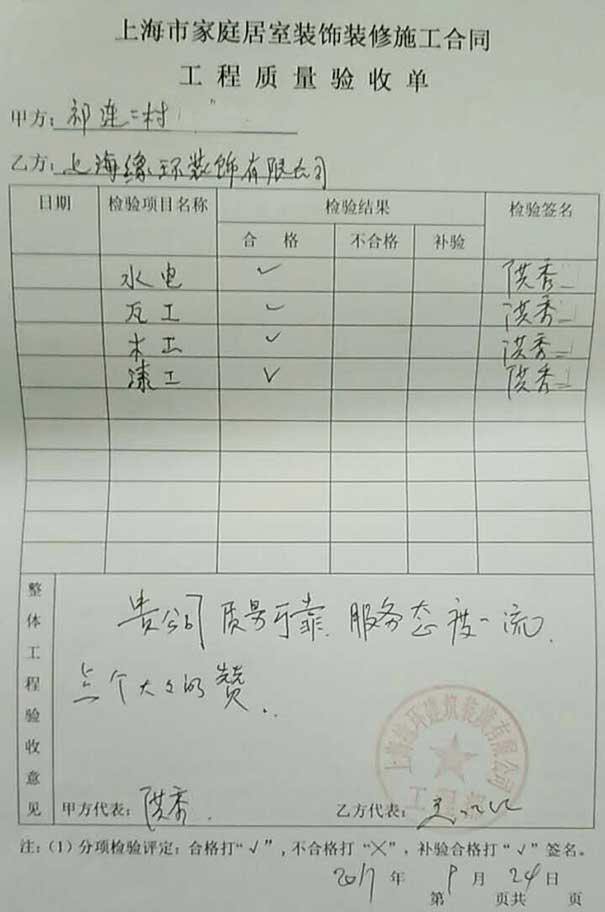 上海市家庭居室装饰装修施工合同
工程质量验收单
甲方：祁连二村
乙方：上海缘环装饰有限公司
日期 检验项目名称 检验结果 检验签名
合格 不合格 补验
水电 ✓ 洪秀
瓦工 ✓ 洪秀
木工 ✓ 洪秀
漆工 ✓ 洪秀
整体工程验收意见
贵公司质量可靠、服务态度一流、
点个大大的赞..
上海缘环建筑装潢有限公司
甲方代表：洪秀. 乙方代表：
注：（1）分项检验评定：合格打“√”，不合格打“╳”，补验合格打“√”签名。
2017年9月24日
第 页共 页